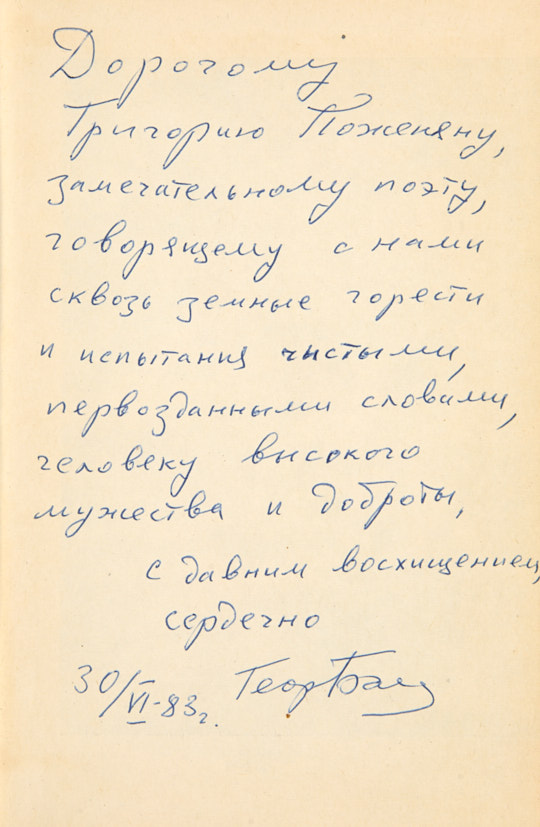 Дорогому
Григорию Поженяну,
замечательному поэту,
говорящему с нами
сквозь земные горести
и испытания чистыми,
первозданными словами,
человеку высокого
мужества и доброты,
с давним восхищением,
сердечно
30/VI-83г.